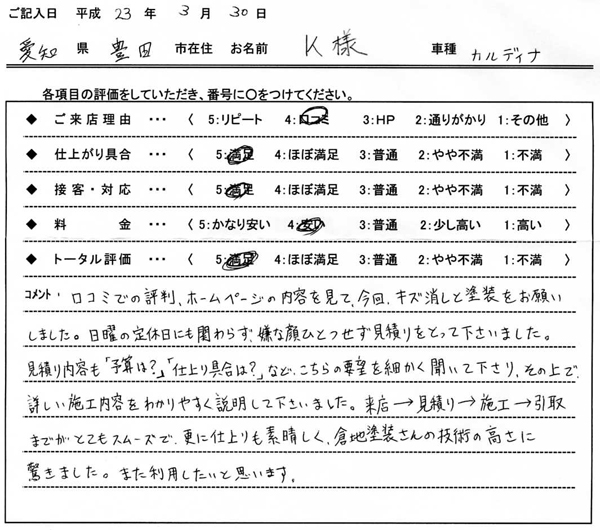 ご記入日 平成 23 年 3 月 30 日
愛知 県 豊田 市在住 お名前 K様 車種 カルディナ
各項目の評価をしていただき、番号に○をつけてください。
◆ ご来店理由 ・・・ 〈 5:リピート 4:口コミ 3:HP 2:通りがかり 1:その他 〉
◆ 仕上がり具合 ・・・ 〈 5:満足 4:ほぼ満足 3:普通 2:やや不満 1:不満 〉
◆ 接客・対応 ・・・ 〈 5:満足 4:ほぼ満足 3:普通 2:やや不満 1:不満 〉
◆ 料金 ・・・ 〈 5:かなり安い 4:安い 3:普通 2:少し高い 1:高い 〉
◆ トータル評価 ・・・ 〈 5:満足 4:ほぼ満足 3:普通 2:やや不満 1:不満 〉
コメント・ 口コミでの評判、ホームページの内容を見て、今回、キズ消しと塗装をお願い
しました。日曜の定休日にも関わらず、嫌な顔ひとつせず見積りをとって下さいました。
見積り内容も「予算は?」「仕上り具合は?」など、こちらの要望を細かく聞いて下さり、その上で、
詳しい施工内容をわかりやすく説明して下さいました。来店→見積り→施工→引取
までがとてもスムーズで、更に仕上りも素晴しく、倉地塗装さんの技術の高さに
驚きました。また利用したいと思います。